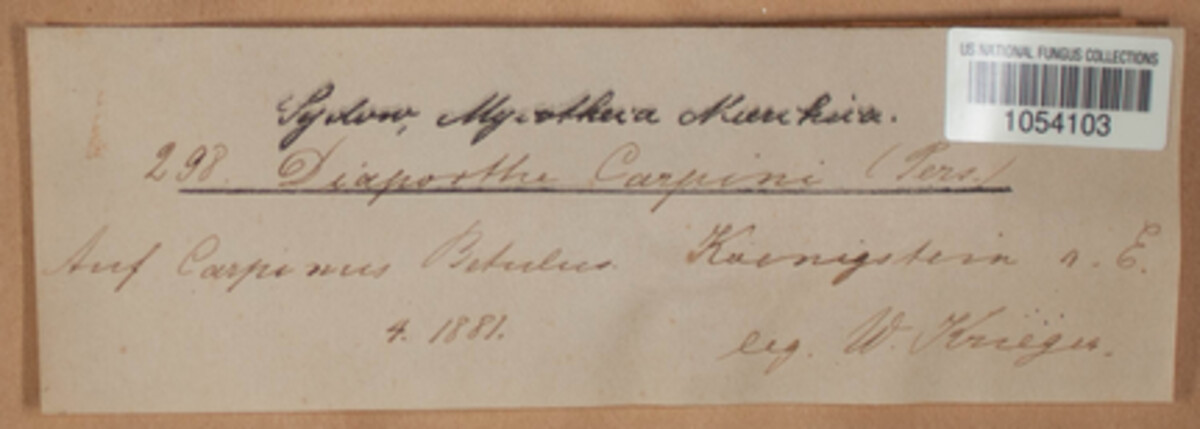 US NATIONAL FUNGUS COLLECTIONS
1054103
Sydow, Mycotheca Marchica.
298. Diaporthe Carpini (Pers.)
Auf Carpinus Betulus. Koenigstein a. E.
4. 1881.
leg. W. Krieger.